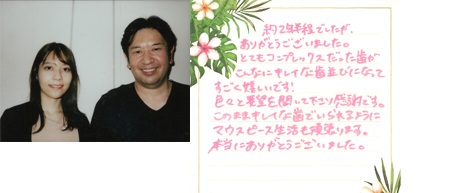 約2年半程でしたが、
ありがとうございました。
とてもコンプレックスだった歯が
こんなにキレイな歯並びになって
すごく嬉しいです!
色々と要望を聞いて下さり感謝です。
このままキレイな歯でいられるように
マウスピース生活も頑張ります。
本当にありがとうございました。